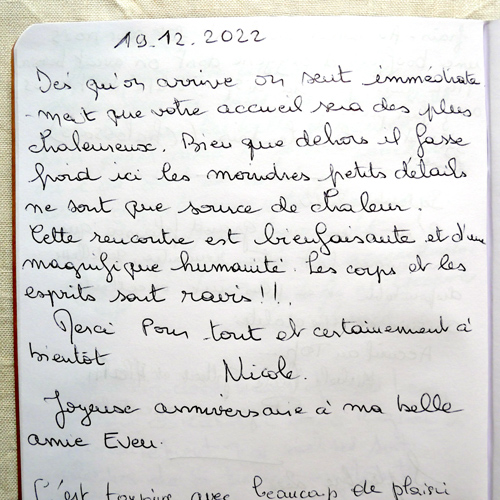 19.12.2022
Dès qu'on arrive on sent immédiate
-ment que votre accueil sera des plus
chaleureux. Bien que dehors il fasse
froid ici les moindres petits détails
ne sont que source de chaleur.
Cette rencontre est bienfaisante et d'une
magnifique humanité. Les corps et les
esprits sont ravis!!.
Merci Pour tout et certainement à
bientôt
Nicole.
Joyeuse anniversaire à ma belle
amie Eveu.
C'est toujours avec beaucoup de plaisi